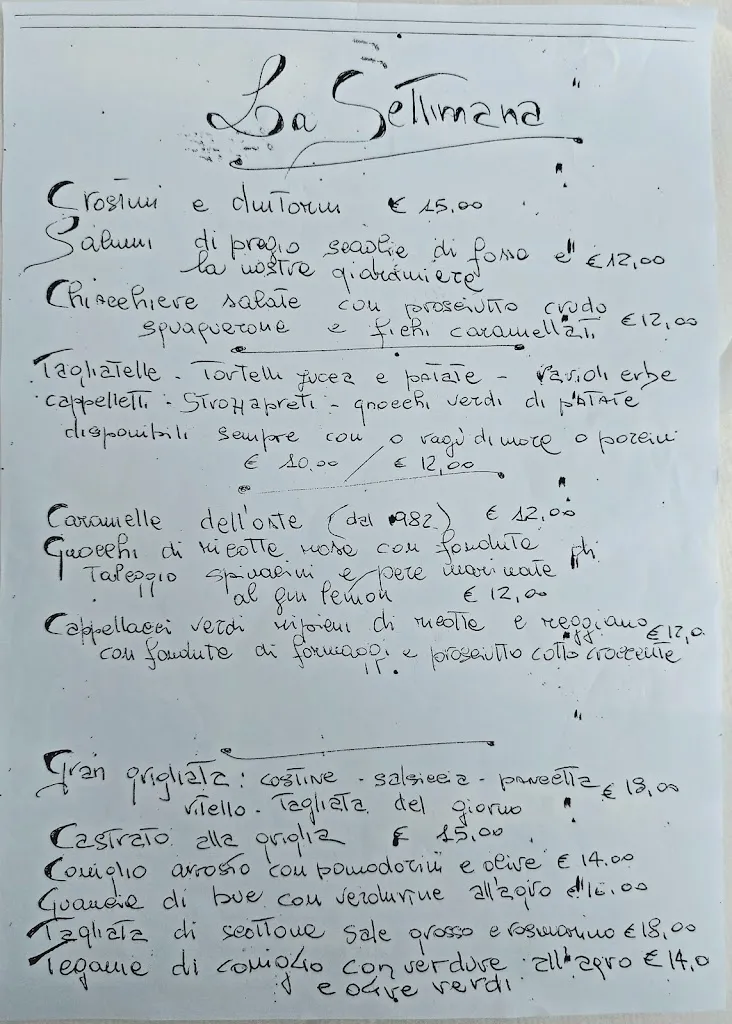 La Settimana
Crostini e dintorni € 15,00
Salumi di pregio scaglie di fossa e
la nostre giardiniere € 12,00
Chiacchiere salate con prosciutto crudo
squaquerone e fichi caramellati € 12,00
Tagliatelle - Tortelli zucca e patate - ravioli erbe
cappelletti - Strozzapreti - gnocchi verdi di patate
disponibili sempre con o ragù di mora o porcini
€ 10.00 / € 12,00
Caramelle dell'oste (dal 1982) € 12,00
Gnocchi di ricotta rosa con fonduta di
Taleggio spinacini e pere marinate
al gin lemon € 12,00
Cappellacci verdi ripieni di ricotta e reggiano € 12,0
con fonduta di formaggi e prosciutto cotto croccante
Gran grigliata: costine - salsiccia - pancetta € 18,00
vitello - Tagliata del giorno
Castrato alla griglia € 15.00
Coniglio arrosto con pomodorini e olive € 14.00
Guancia di bue con verdurine all'agro € 16.00
Tagliata di scottona sale grosso e rosmarino € 18,00
Tegame di coniglio con verdure all'agro € 14,0
e olive verdi